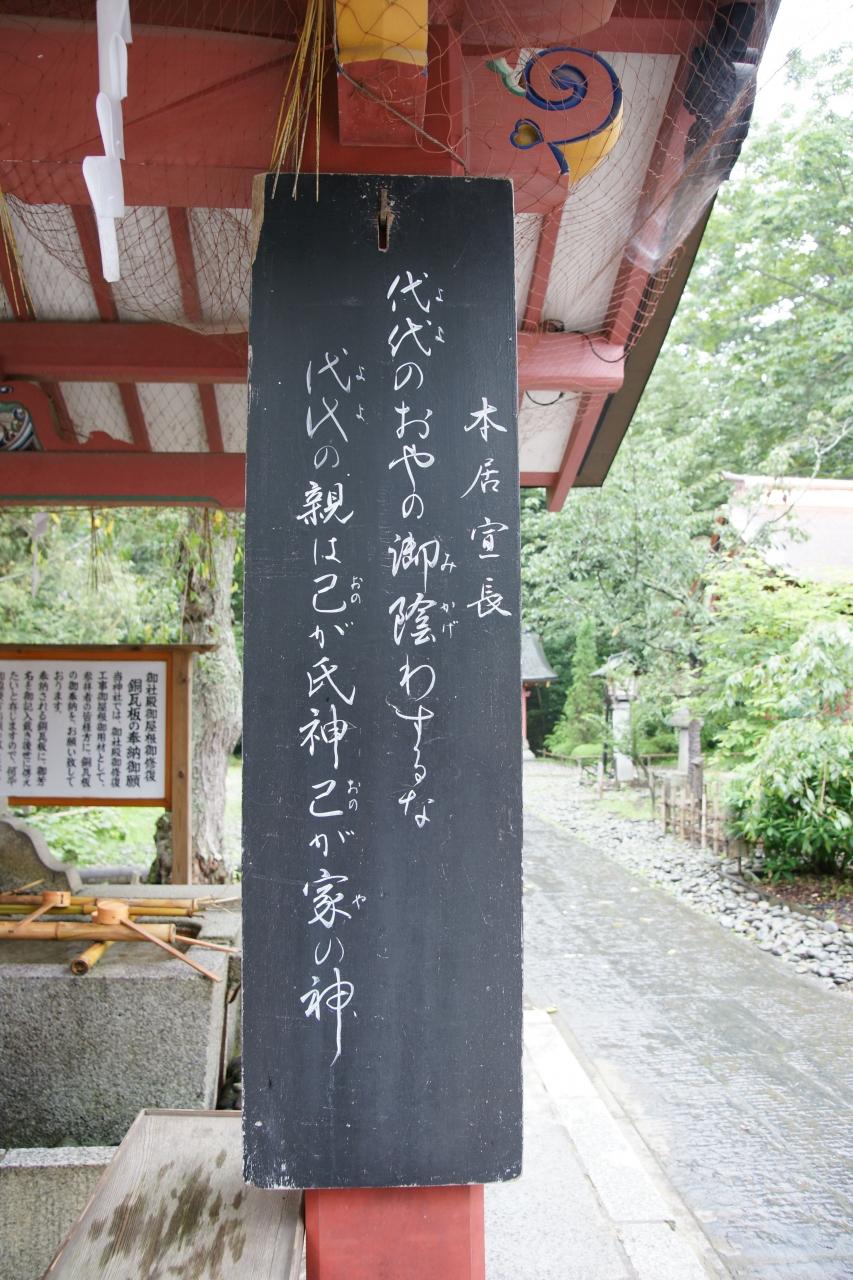 本居宣長
代代のおやの御陰わするな
代代の親は己が氏神己が家の神
よ よ
み かげ
よ よ
おの
おの
や
御社殿御屋根御修復
銅瓦板の奉納御願
当神社では、御社殿御修復
工事御屋根御用材として、
参拝者の皆様方に、銅瓦板
の御奉納を、お願い致して
おります。
奉納される銅瓦板に、御芳
名を御記入戴き後世に
たいと存じますので、何卒